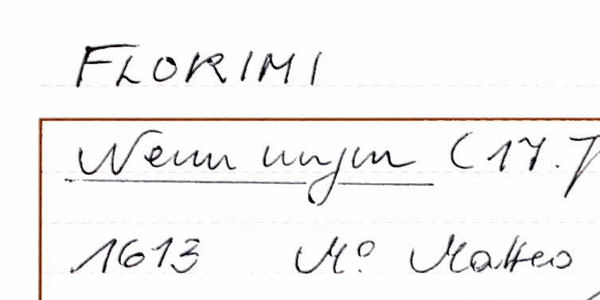 FLORIMI
Nennungen (17. J
1613 Mº Matteo